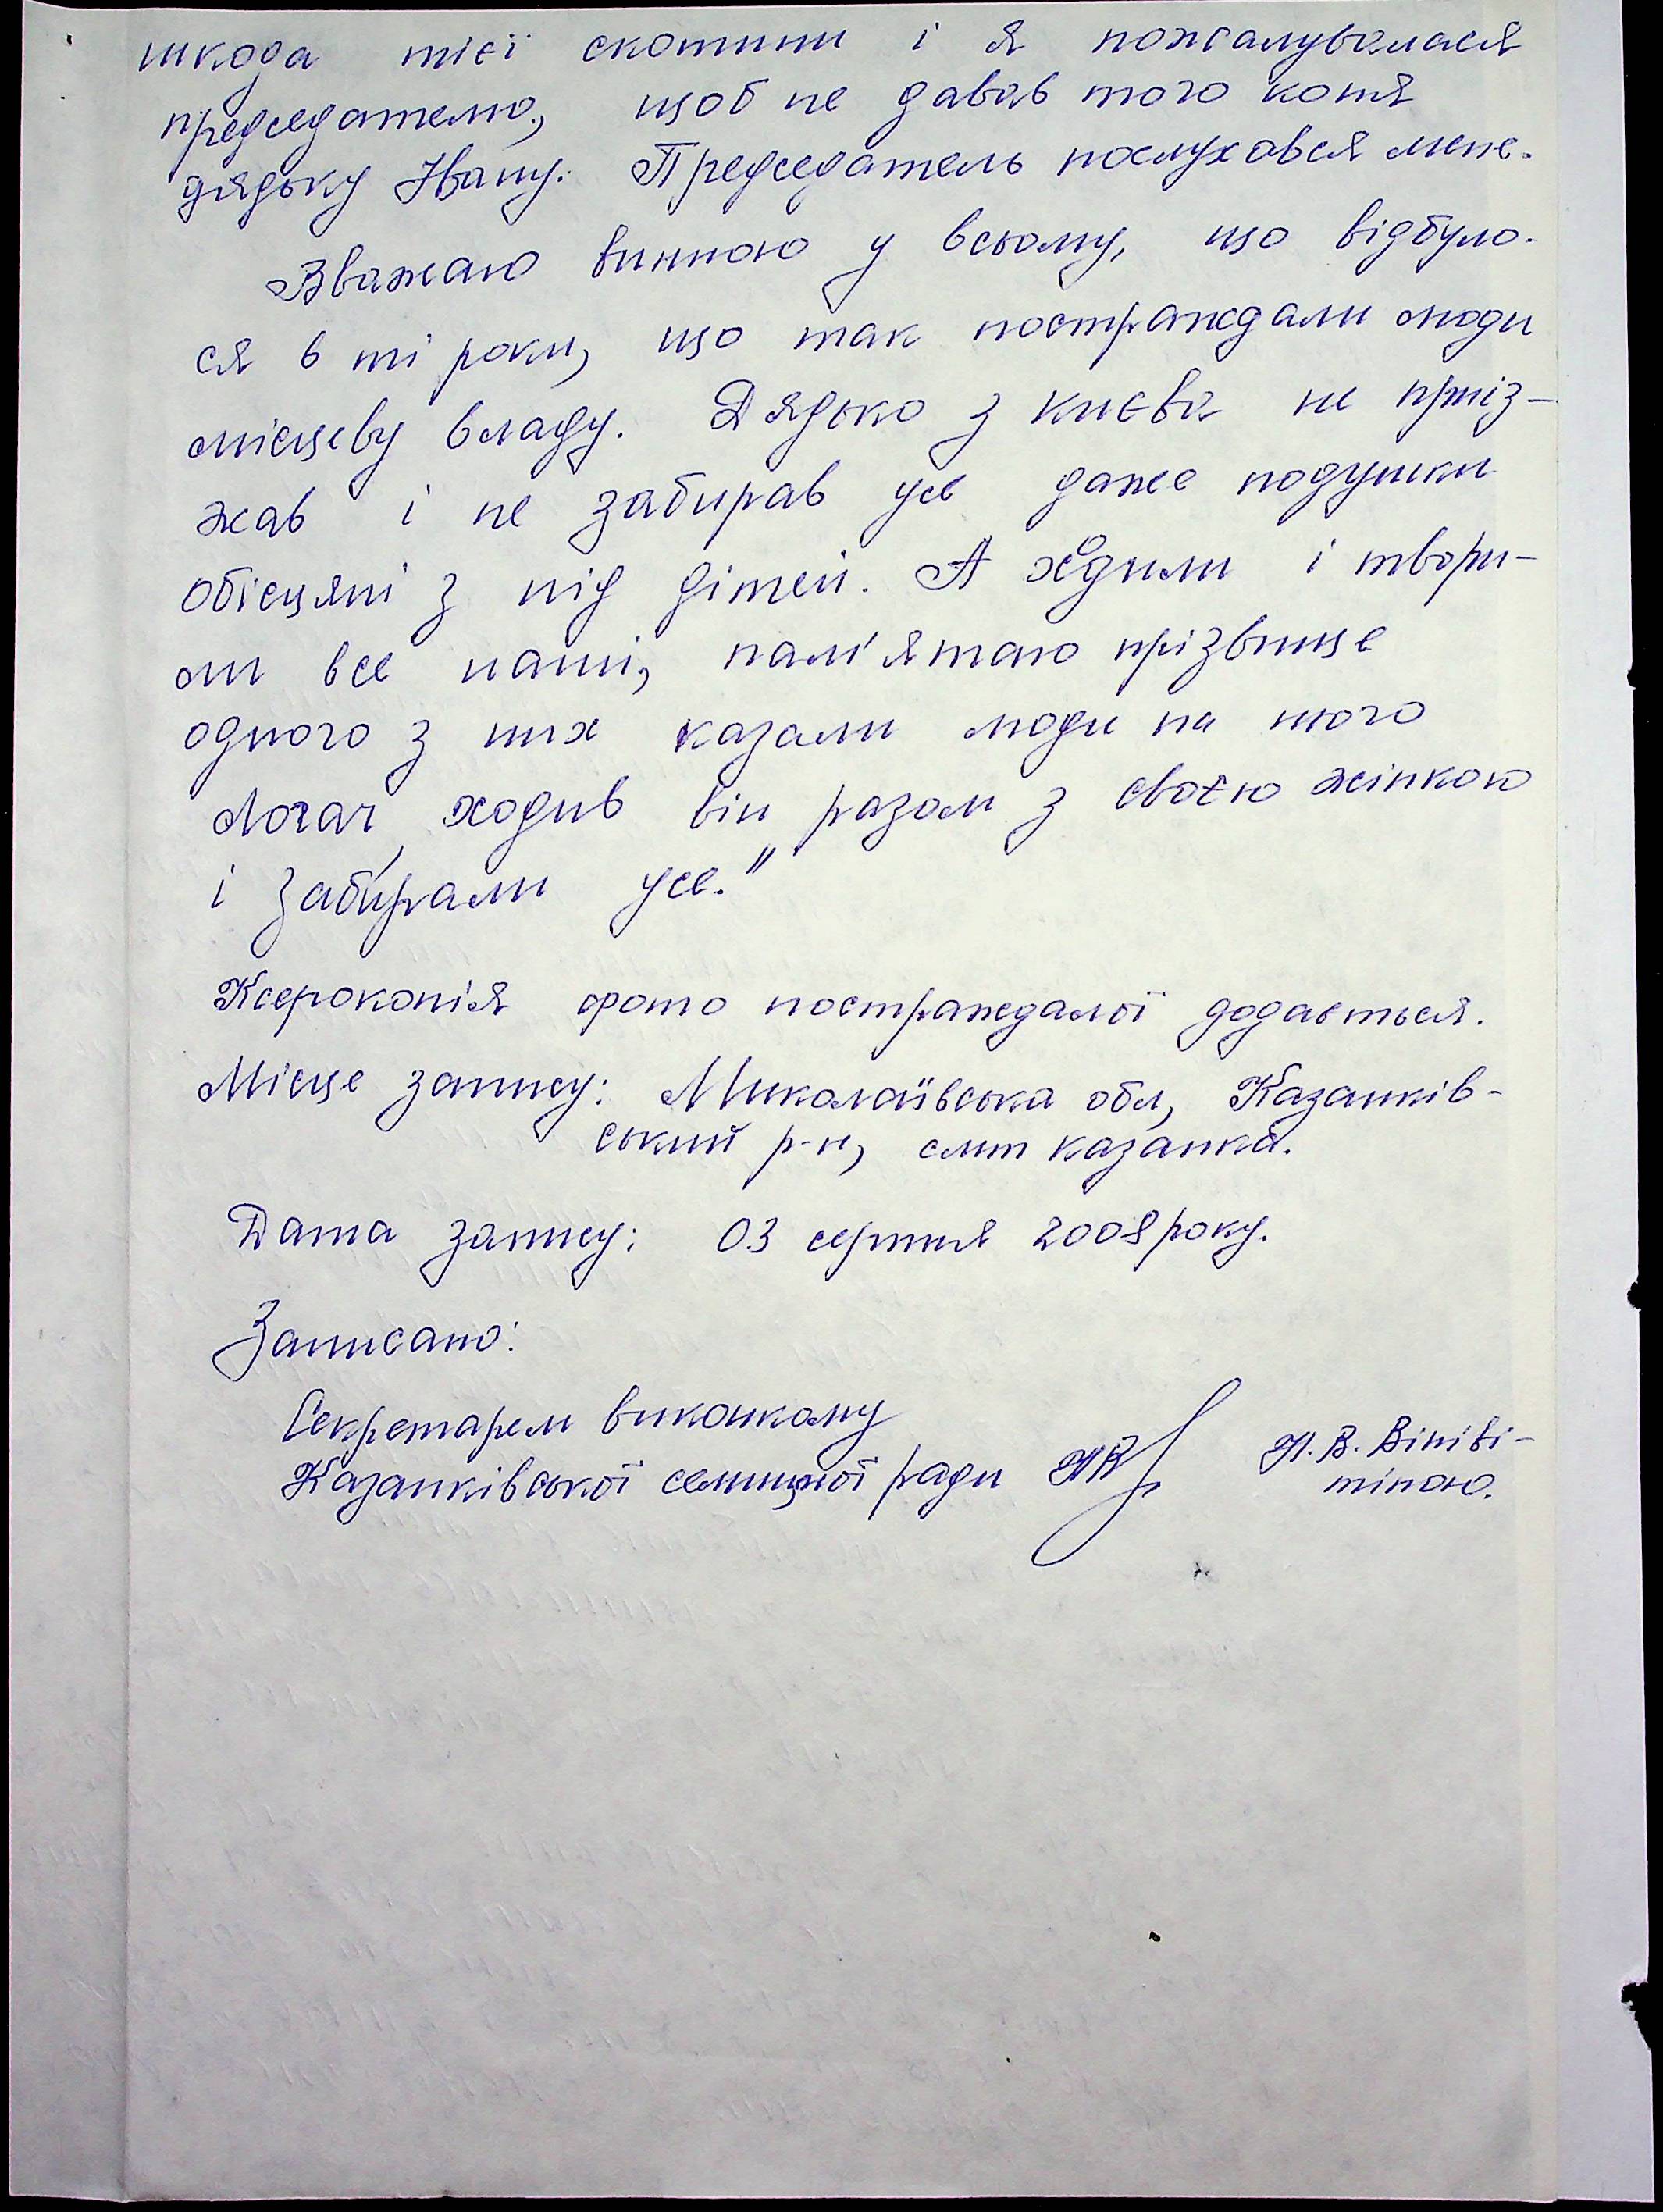 шкода тієї скотини і я пожалувалася
председателю, щоб не давав того коня
дядьку Івану. Председатель послухався мене.
Зважаю винною у всьому, що відбуло-
ся в ті роки, що так постраждали люди
місцеву владу. Дядько з Києва не приїз-
жав і не забирав усе даже подушки
обісцяні з під дітей. А ходили і твори-
ли все наші, пам'ятаю прізвище
одного з них казали люди на нього
Логач, ходив він разом з своєю жінкою
і забирали усе."
Ксерокопія фото постраждалої додається.
Місце запису: Миколаївська обл, Казанків-
ський р-н, смт Казанка.
Дата запису: 03 серпня 2008 року.
Записано:
Секретарем виконкому
Казанківської селищної ради Н.В. Вініві-
тіною.